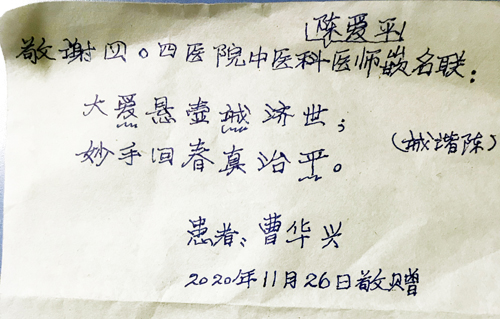 陈爱平
敬谢四〇四医院中医科医师嵌名联：
大爱悬壶诚济世；
妙手回春真治平。
（诚谐陈）
患者：曹华兴
2020年11月26日敬赠